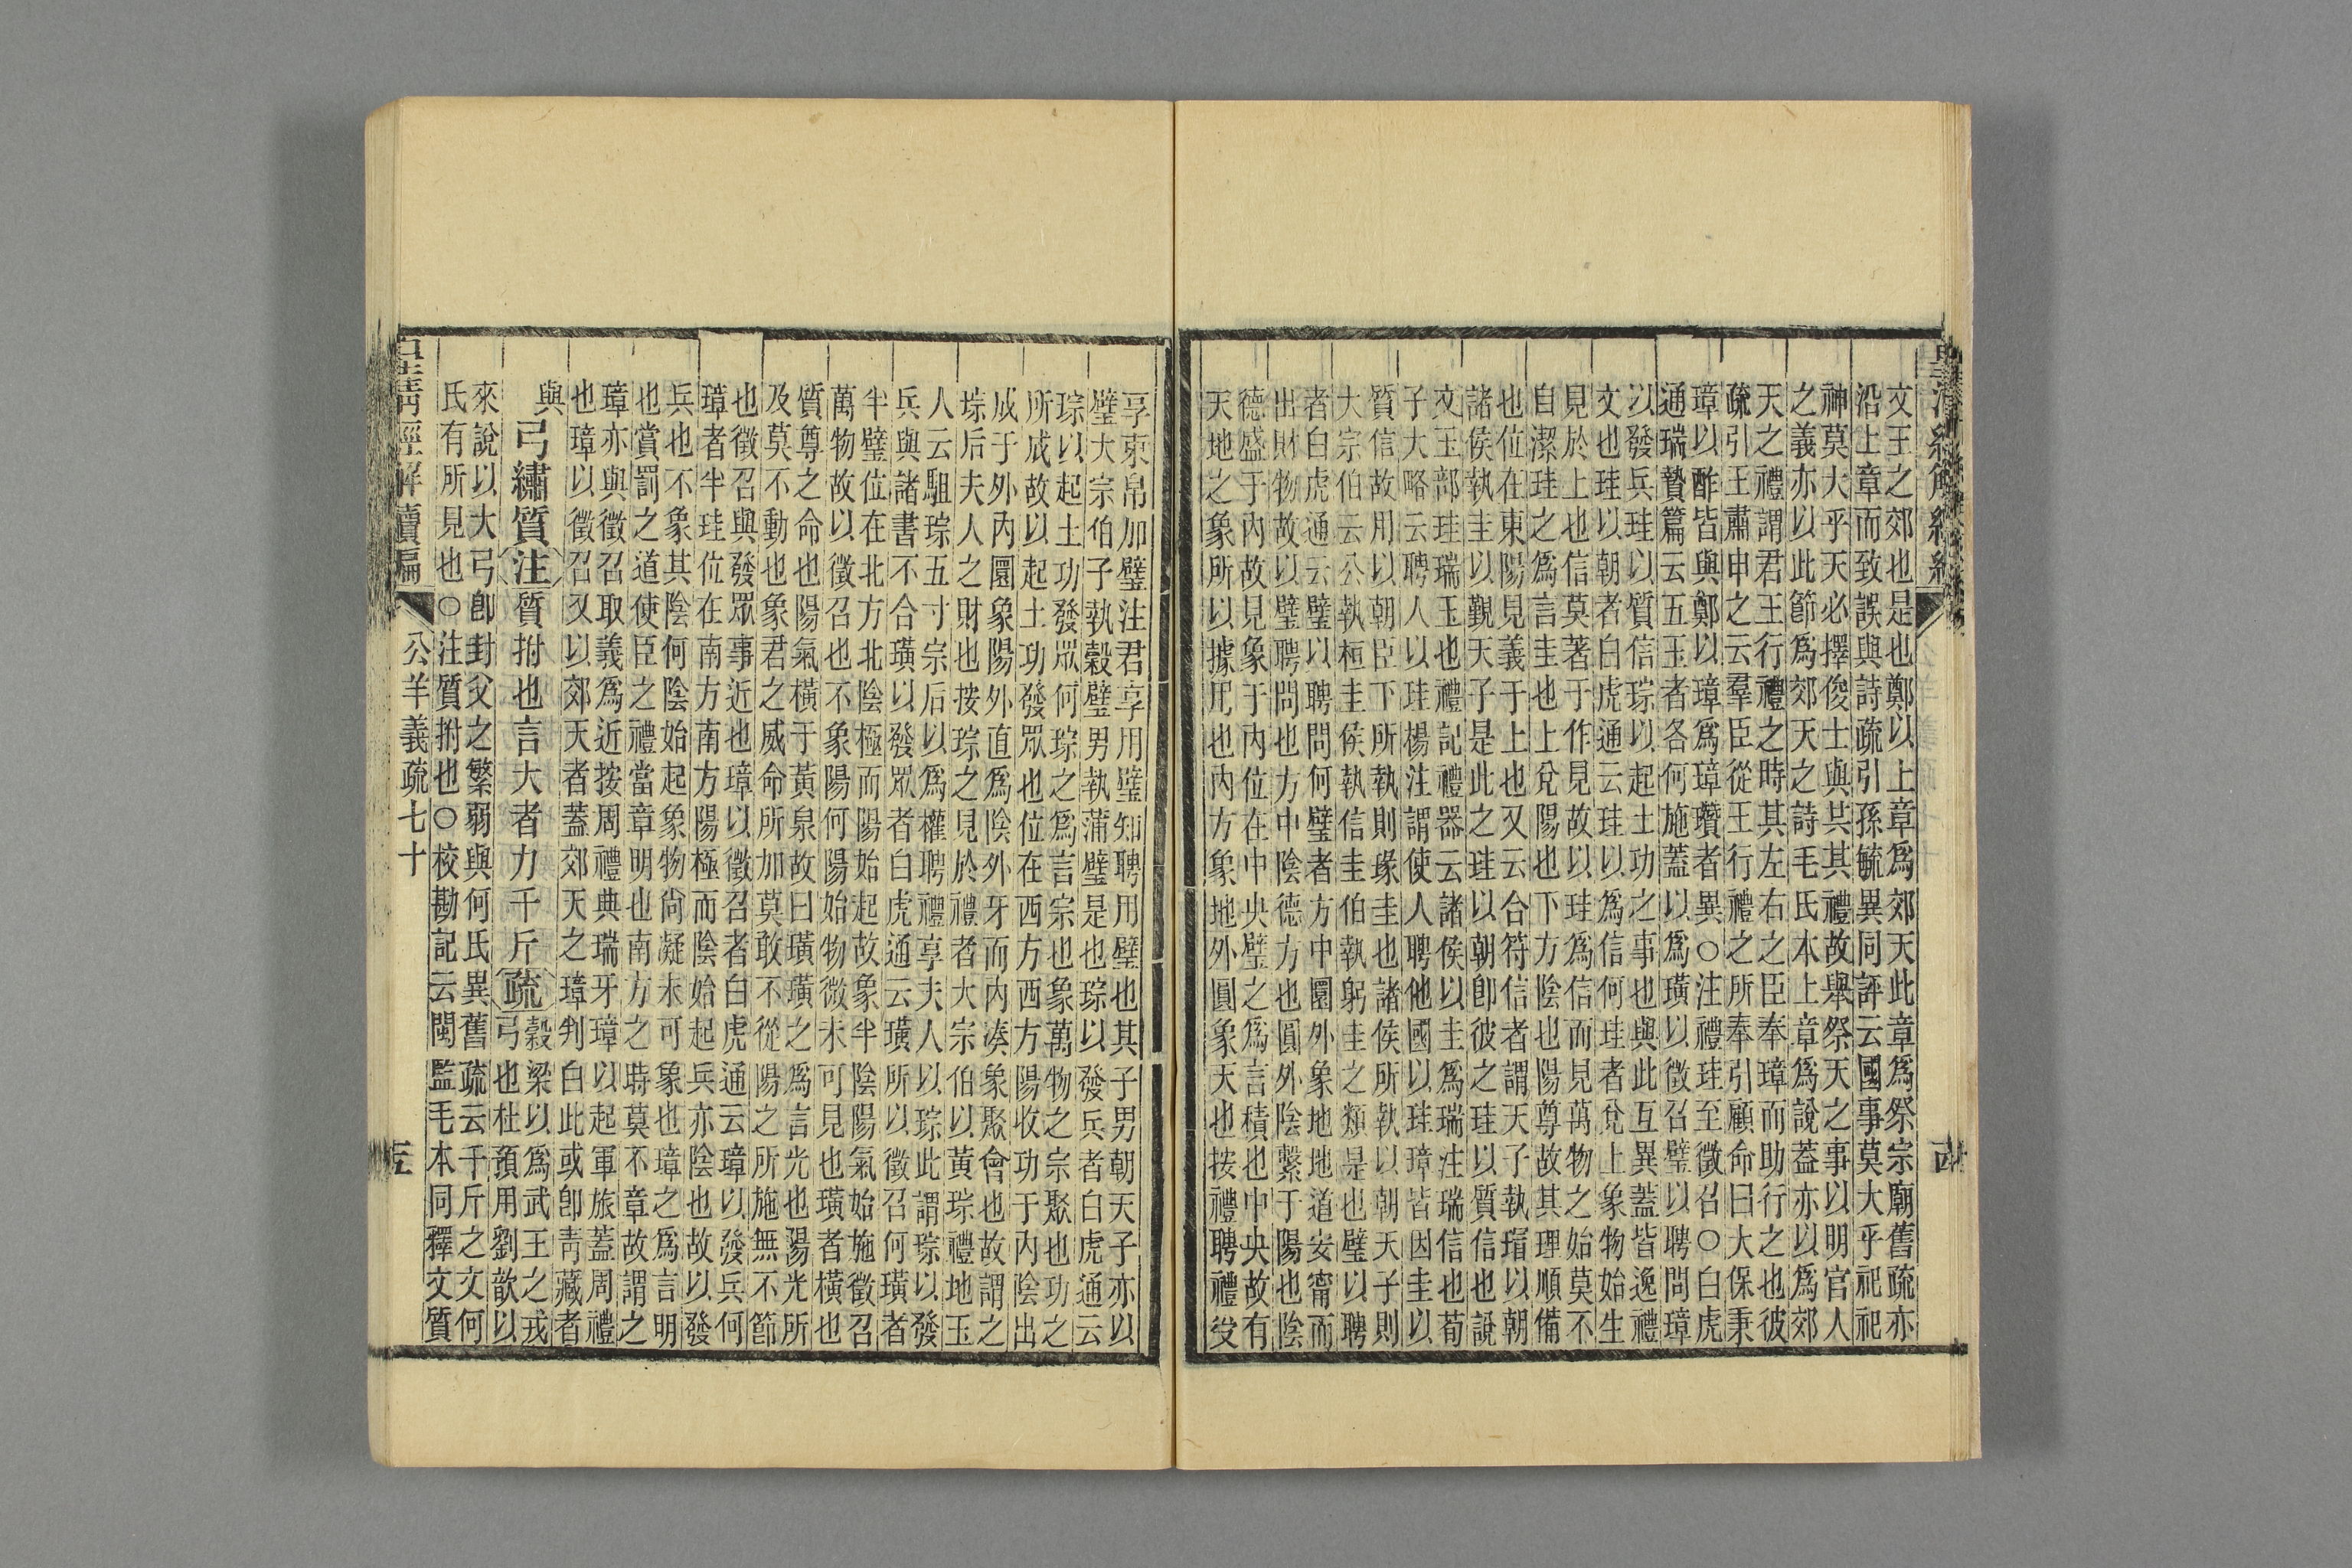 皇淸經解續編
文王之郊也是也鄭以上章爲郊天此章爲祭宗廟舊疏亦
沿上章而致誤與詩疏引孫毓異同評云國事莫大乎祀祀
神莫大乎天必擇俊士與共其禮故舉祭天之事以明官人
之義亦以此節爲郊天之詩毛氏本上章爲說蓋亦以爲郊
天之禮謂君王行禮之時其左右之臣奉璋而助行之也彼
疏引王肅申之云羣臣從王行禮之所奉引顧命曰大保秉
璋以酢皆與鄭以璋爲璋瓚者異○注禮珪至徵召○白虎
通瑞贄篇云五玉者各何施蓋以爲璜以徵召璧以聘問璋
以發兵珪以質信琮以起土功之事也與此互異蓋皆逸禮
文也珪以朝者白虎通云珪以爲信何珪者兌上象物始生
見於上也信莫著于作見故以珪爲信而見萬物之始莫不
自潔珪之爲言圭也上兌陽也下方陰也陽尊故其理順備
也位在東陽見義于上也又云合符信者謂天子執瑁以朝
諸侯執圭以覲天子是此之珪以朝卽彼之珪以質信也說
文玉部珪瑞玉也禮記禮器云諸侯以圭爲瑞注瑞信也荀
子大略云聘人以珪楊注謂使人聘他國以珪璋皆因圭以
質信故用以朝臣下所執則瑑圭也諸侯所執以朝天子則
大宗伯云公執桓圭侯執信圭伯執躬圭之類是也璧以聘
者白虎通云璧以聘問何璧者方中圜外象地地道安甯而
出財物故以璧聘問也方中陰德方也圓外陰繫于陽也陰
德盛于內故見象于內位在中央璧之爲言積也中央故有
天地之象所以據凥也內方象地外圓象天也按禮聘禮受
享束帛加璧注君享用璧知聘用璧也其子男朝天子亦以
璧大宗伯子執穀璧男執蒲璧是也琮以發兵者白虎通云
琮以起土功發眾何琮之爲言宗也象萬物之宗聚也功之
所成故以起土功發眾也位在西方西方陽收功于內陰出
成于外內圜象陽外直爲陰外牙而內湊象聚會也故謂之
琮后夫人之財也按琮之見於禮者大宗伯以黃琮禮地玉
人云駔琮五寸宗后以爲權聘禮享夫人以琮此謂琮以發
兵與諸書不合璜以發眾者白虎通云璜所以徵召何璜者
半璧位在北方北陰極而陽始起故象半陰陽氣始施徵召
萬物故以徵召也不象陽何陽始物微未可見也璜者橫也
質尊之命也陽氣橫于黃泉故曰璜璜之爲言光也陽光所
及莫不動也象君之威命所加莫敢不從陽之所施無不節
也徵召與發眾事近也璋以徵召者白虎通云璋以發兵何
璋者半珪位在南方南方陽極而陰始起兵亦陰也故以發
兵也不象其陰何陰始起象物尙凝未可象也璋之爲言明
也賞罰之道使臣之禮當章明也南方之時莫不章故謂之
璋亦與徵召取義爲近按周禮典瑞牙璋以起軍旅蓋周禮
也璋以徵召又以郊天者蓋郊天之璋判白此或卽靑藏者
與
弓繡質注質拊也言大者力千斤疏穀梁以爲武王之戎
弓也杜預用劉歆以
來說以大弓卽封父之繁弱與何氏異舊疏云千斤之文何
氏有所見也○注質拊也○校勘記云閩監毛本同釋文質
皇淸經解續編 公羊義疏七十